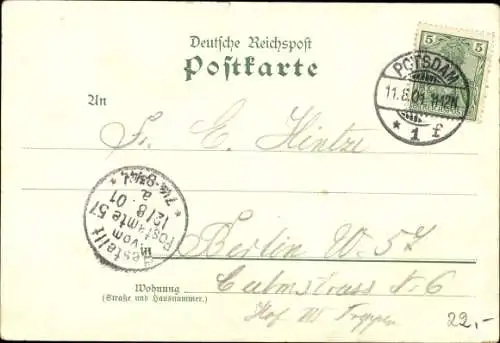 Deutsche Reichspost
Postkarte
5 5
POTSDAM
11.8.01. 11-12N.
* 1 f
An
Fr. E. Hintze
Bestellt
vom
Postamte 57
12/8 01
a.
7¼-8¾ V.
in
Berlin W. 57
Wohnung
(Straße und Hausnummer.)
Culmstrasse No 6
Hof III Treppen
22,-